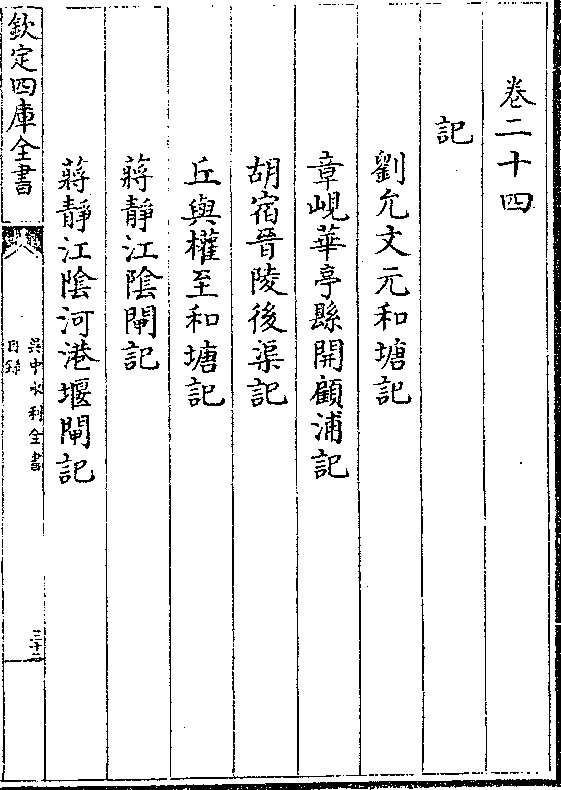 卷二十四
記
劉允文元和塘記
章峴華亭縣開顧浦記
胡宿晉陵後渠記
丘與權至和塘記
蔣靜江陰閘記
蔣靜江陰河港堰閘記
欽定四庫全書
吳中水利全書
目錄
三十二